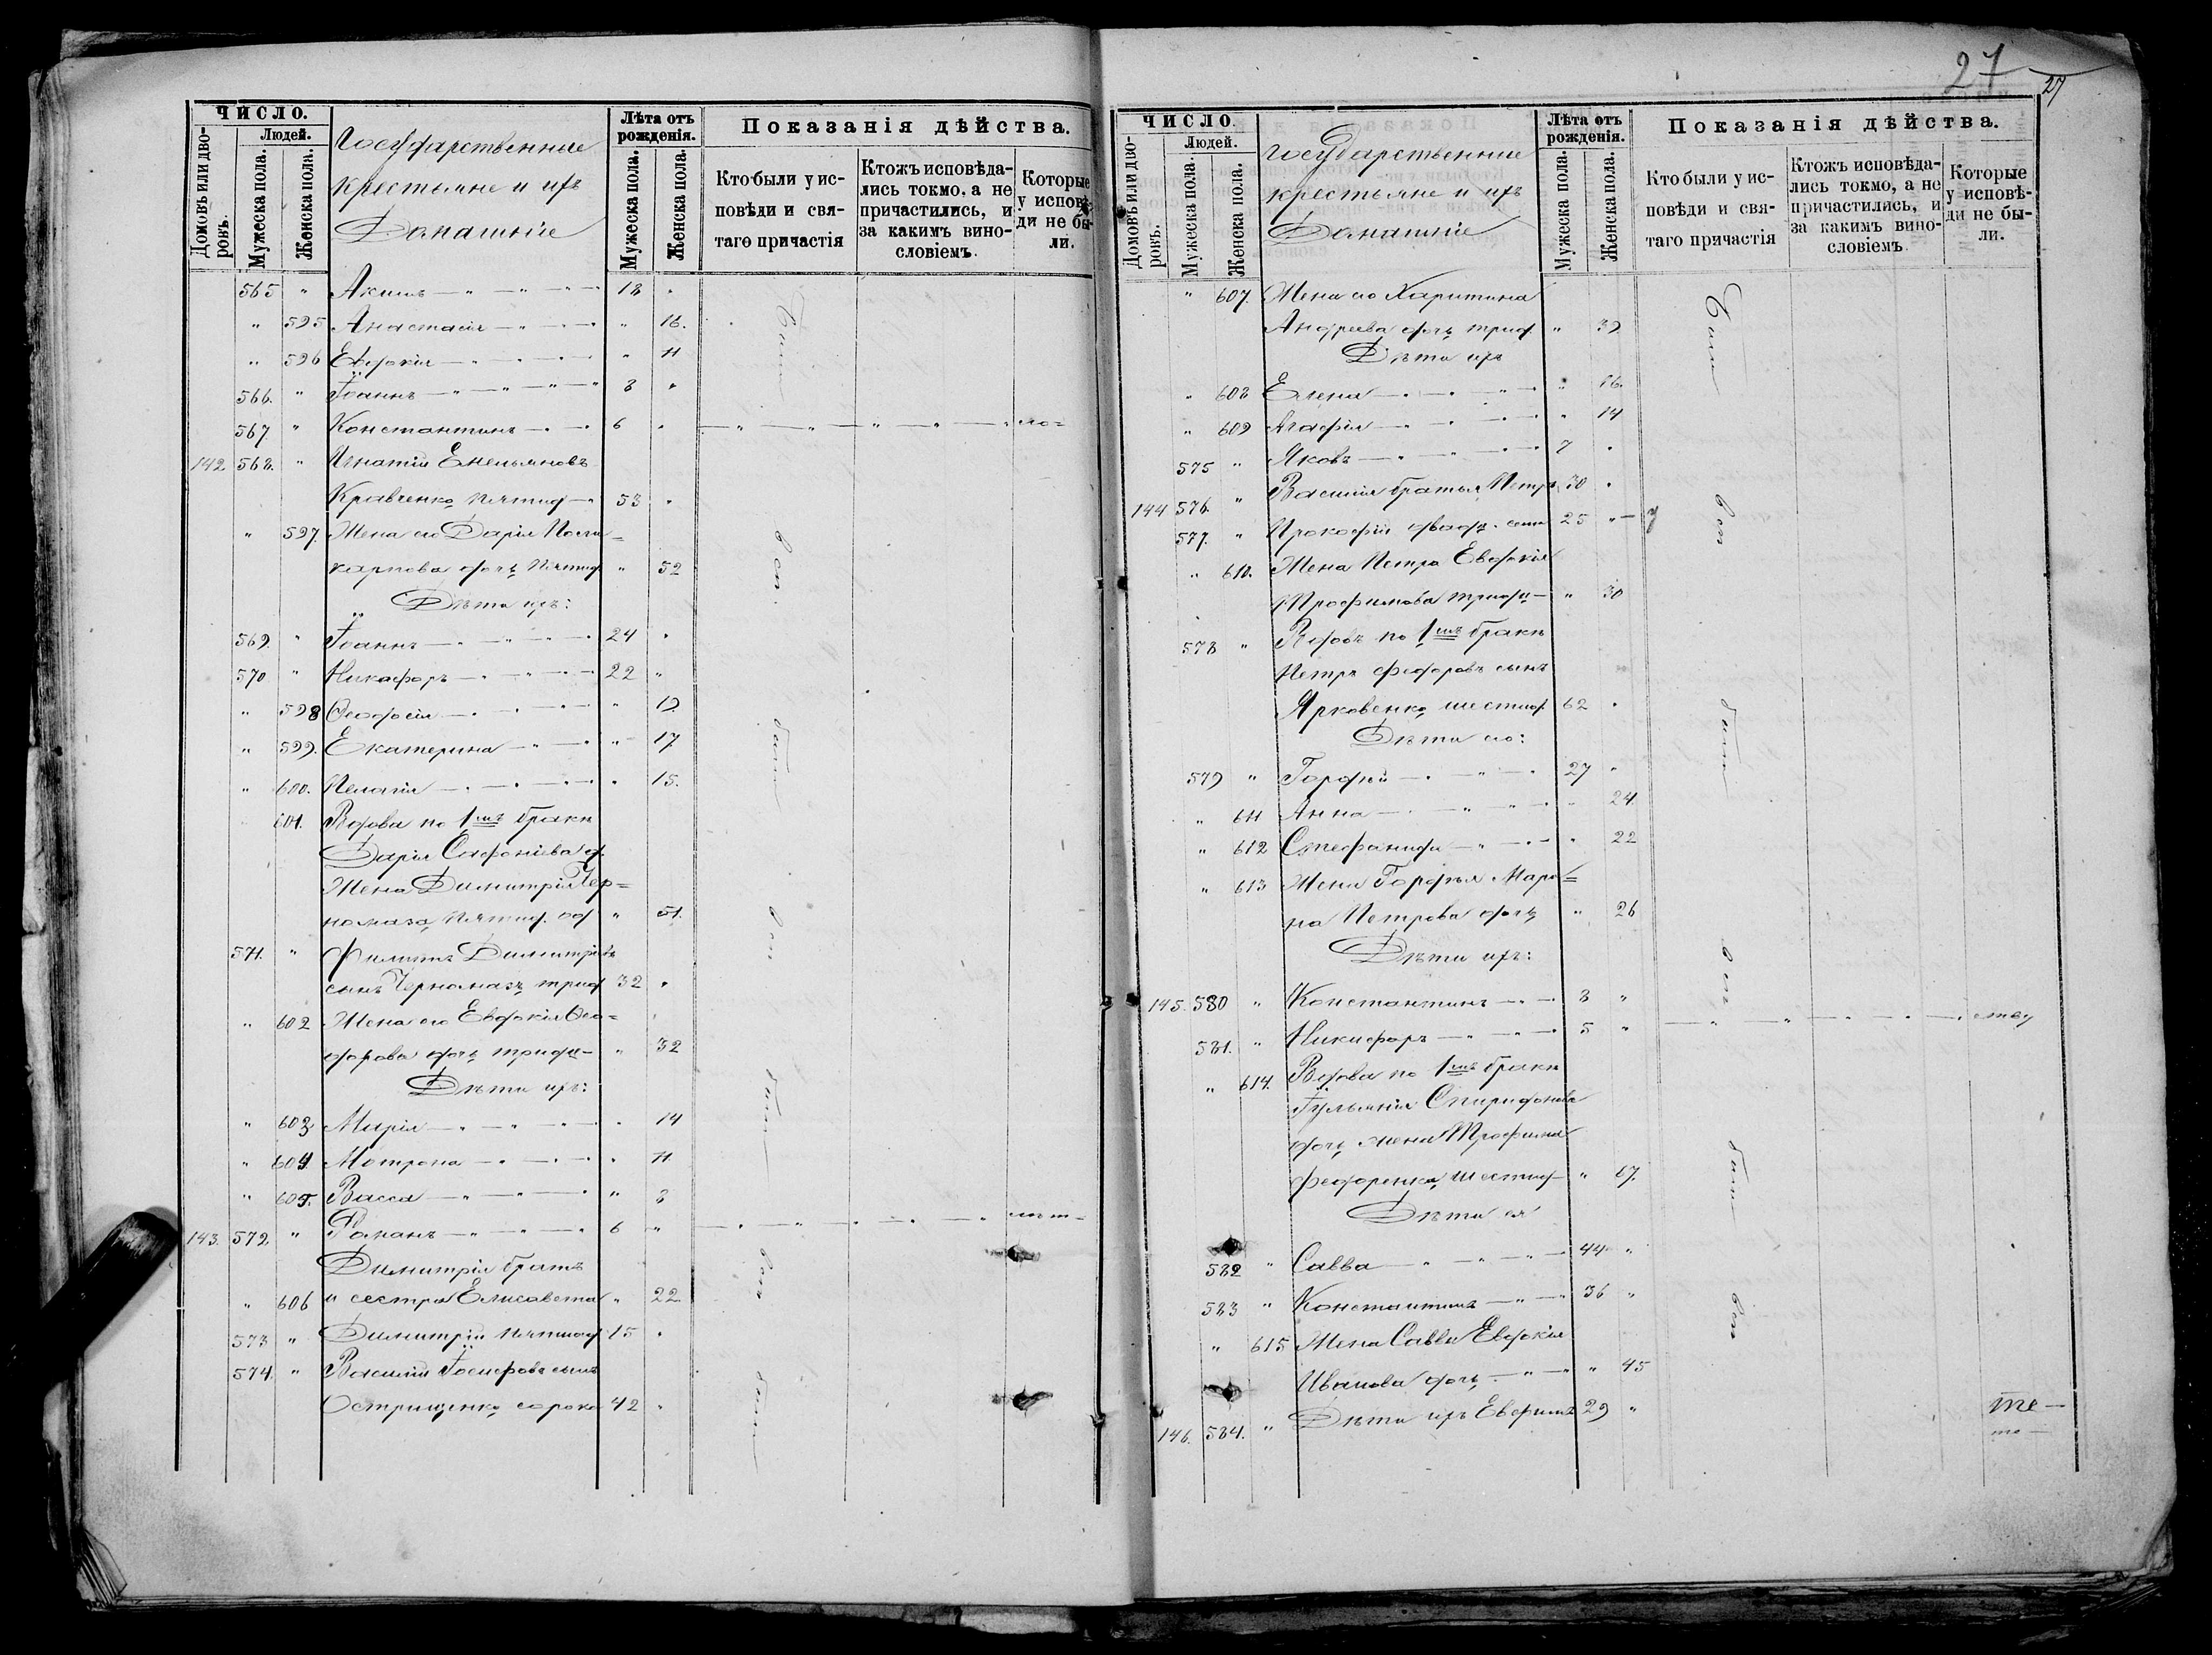 ЧИСЛО.
Домовъ или дворовъ.
Людей.
Мужеска пола.
Женска пола.
Государственные
крестьяне и ихъ
Домашніе
Лѣта отъ рожденія.
Мужеска пола.
Женска пола.
Показанія дѣйства.
Кто были у ис-
повѣди и свя-
таго причастія
Ктожъ исповѣда-
лись токмо, а не
причастились, и
за какимъ вино-
словіемъ.
Которые
у исповѣ-
ди не бы-
ли.
565 " Акимъ — " — " — 18 "
" 595 Анастасія — " — " 16.
" 596 Евдокія — " — " 11
566. " Іоаннъ — " — " 8 "
567. " Константинъ — " — 6 "
142 568. " Игнатій Емельяновъ
Кравченко, пятид — 53 "
" 597. Жена его Дарія Поли=
карпова дочь пятид " 52
Дѣти ихъ:
569. " Іоаннъ — " — 24 "
570 " Никифоръ — " — 22 "
" 598 Ѳеодосія — " — " 19
" 599. Екатерина — " — " 17
" 600. Пелагія — " — " 15.
601. Вдова по 1мъ бракѣ
Дарія Сафоніева д.
Жена Димитрія Чер=
номаза, пятид. од " 51.
571. " Филиппъ Димитріевъ
сынъ Черномазъ трид 32 "
" 602 Жена его Евдокія Ѳео=
дорова дочь тридц — " 32
Дѣти ихъ:
" 603 Марія — " — " 14
" 604 Мотрона — " — " 11
" 605. Васса — " — " 8
143. 572. " Романъ — " — 6 "
Димитрія братъ
" 606 и сестра Елисавета " 22
573 " Димитрій пятнад 15 "
574. " Василій Іосифовъ сынъ
Острищенко, сорокъ 42 "
27
27
ЧИСЛО.
Домовъ или дворовъ.
Людей.
Мужеска пола.
Женска пола.
Государственные
крестьяне и ихъ
Домашніе
Лѣта отъ рожденія.
Мужеска пола.
Женска пола.
Показанія дѣйства.
Кто были у ис-
повѣди и свя-
таго причастія
Ктожъ исповѣда-
лись токмо, а не
причастились, и
за какимъ вино-
словіемъ.
Которые
у исповѣ-
ди не бы-
ли.
" 607. Жена его Харитина
Андреева дочь трид " 39
Дѣти ихъ
" 608 Елена — " — " 16.
" 609 Агафія — " — " 14
575 " Яковъ — " — 7 "
144 576. " Василія братья Петръ 30 "
577. " Прокофій двадц. семи 25 "
" 610. Жена Петра Евдокія
Трофимова тридц — " 30
578 " Вдовъ по 1мъ бракѣ
Петръ Федоровъ сынъ
Ярковенко, шестид. 62 "
Дѣти его:
579 " Гордѣй — " — 27 "
" 611 Анна — " — " 24
" 612 Стефанида — " — " 22
" 613 Жена Гордѣя Мари=
на Петрова дочь " 26
Дѣти ихъ:
145. 580 " Константинъ — " — 8 "
581. " Никифоръ — " — 5 "
" 614. Вдова по 1мъ бракѣ
Іульянія Спиридонова
дочь жена Трофима
Федоренка, шестид — " 67.
Дѣти ея
582 " Савва — " — 44 "
583 " Константинъ — " — 36 "
" 615 Жена Саввы Евдокія
Иванова дочь — " — " 45
146. 584. " Дѣти ихъ Евфимъ 29 "